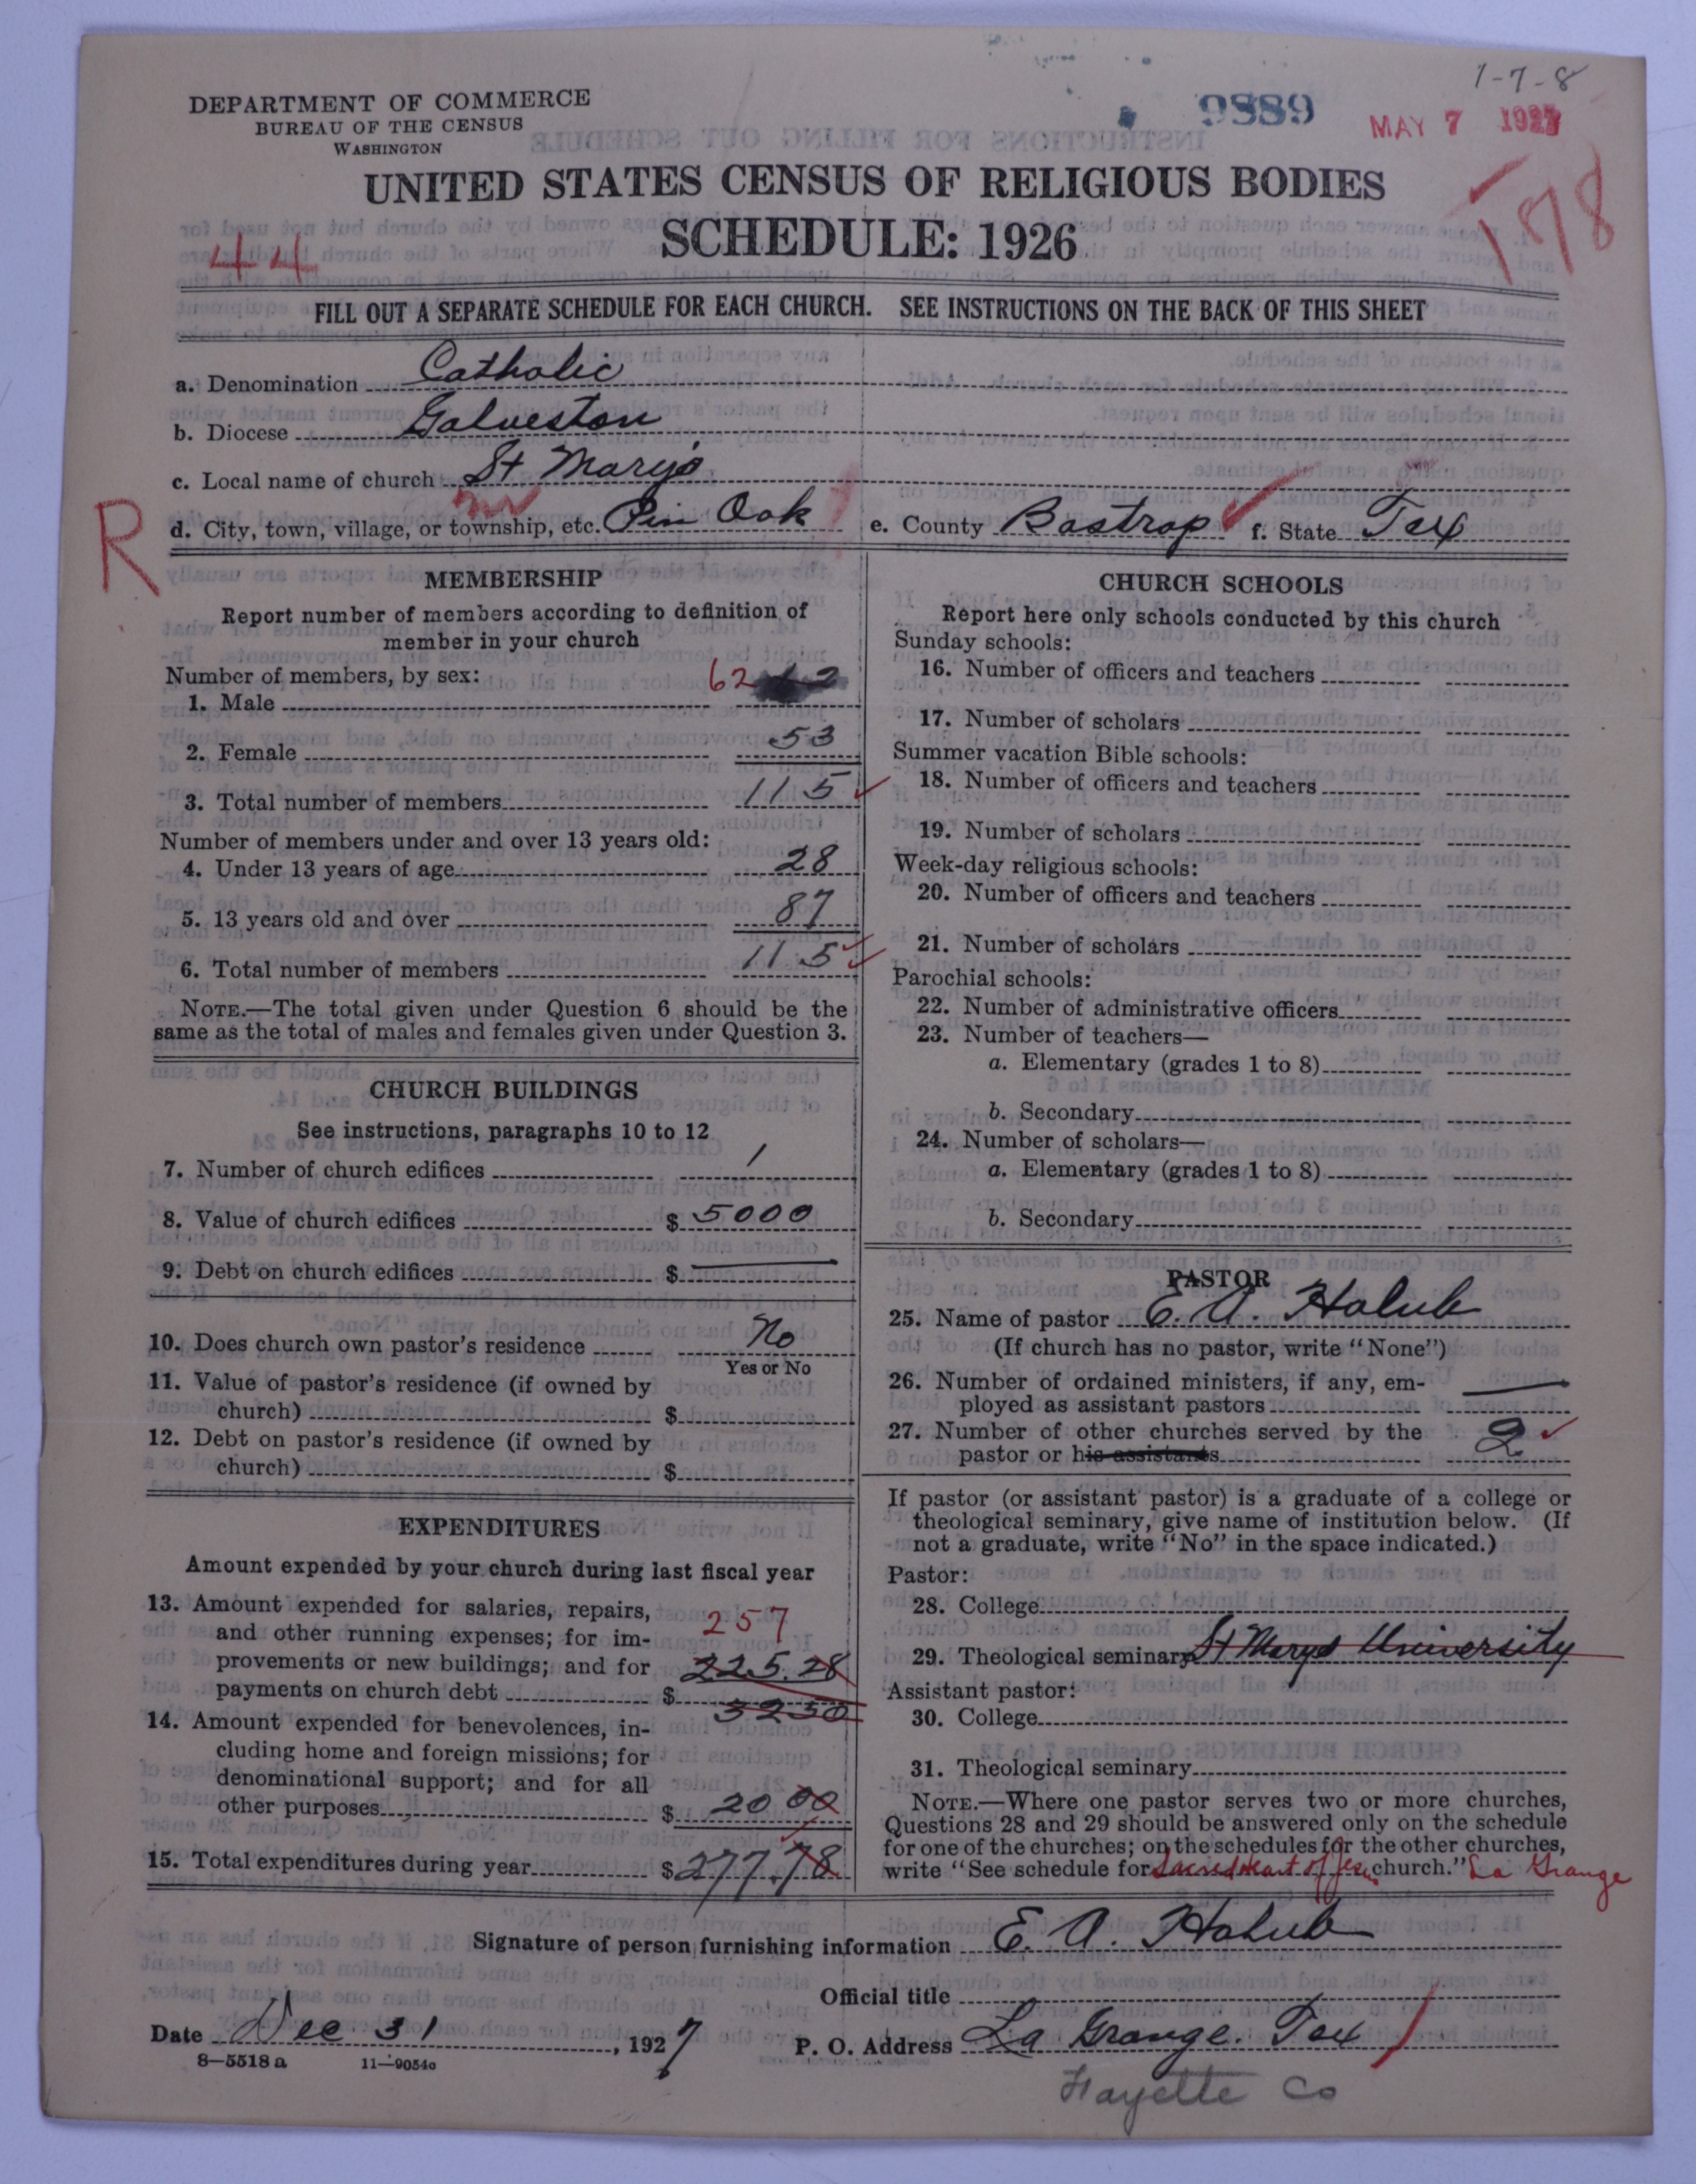 1-7-8
DEPARTMENT OF COMMERCE
BUREAU OF THE CENSUS
WASHINGTON
9889
MAY 7 1927
UNITED STATES CENSUS OF RELIGIOUS BODIES
SCHEDULE: 1926
44
178
FILL OUT A SEPARATE SCHEDULE FOR EACH CHURCH. SEE INSTRUCTIONS ON THE BACK OF THIS SHEET
a. Denomination Catholic
b. Diocese Galveston
c. Local name of church St Mary's
R
d. City, town, village, or township, etc. Pin Oak e. County Bastrop f. State Tex
MEMBERSHIP
Report number of members according to definition of
member in your church
Number of members, by sex:
1. Male 62
2. Female 53
3. Total number of members 115
Number of members under and over 13 years old:
4. Under 13 years of age 28
5. 13 years old and over 87
6. Total number of members 115
NOTE.—The total given under Question 6 should be the
same as the total of males and females given under Question 3.
CHURCH BUILDINGS
See instructions, paragraphs 10 to 12
7. Number of church edifices 1
8. Value of church edifices $ 5000
9. Debt on church edifices $ —
10. Does church own pastor's residence No
Yes or No
11. Value of pastor's residence (if owned by
church) $
12. Debt on pastor's residence (if owned by
church) $
EXPENDITURES
Amount expended by your church during last fiscal year
13. Amount expended for salaries, repairs,
and other running expenses; for im- 257
provements or new buildings; and for 225.28
payments on church debt $ 3250
14. Amount expended for benevolences, in-
cluding home and foreign missions; for
denominational support; and for all
other purposes $ 20 00
15. Total expenditures during year $ 277.78
CHURCH SCHOOLS
Report here only schools conducted by this church
Sunday schools:
16. Number of officers and teachers
17. Number of scholars
Summer vacation Bible schools:
18. Number of officers and teachers
19. Number of scholars
Week-day religious schools:
20. Number of officers and teachers
21. Number of scholars
Parochial schools:
22. Number of administrative officers
23. Number of teachers—
a. Elementary (grades 1 to 8)
b. Secondary
24. Number of scholars—
a. Elementary (grades 1 to 8)
b. Secondary
PASTOR
25. Name of pastor E. A. Holub
(If church has no pastor, write "None")
26. Number of ordained ministers, if any, em-
ployed as assistant pastors —
27. Number of other churches served by the
pastor or his assistants 2
If pastor (or assistant pastor) is a graduate of a college or
theological seminary, give name of institution below. (If
not a graduate, write "No" in the space indicated.)
Pastor:
28. College
29. Theological seminary St Marys University
Assistant pastor:
30. College
31. Theological seminary
NOTE.—Where one pastor serves two or more churches,
Questions 28 and 29 should be answered only on the schedule
for one of the churches; on the schedules for the other churches,
write "See schedule for Sacred Heart of Jesus church." La Grange
Signature of person furnishing information E. A. Holub
Official title
Date Dec 31, 1927 P. O. Address La Grange. Tex
8—5518 a 11—9054c
Fayette Co